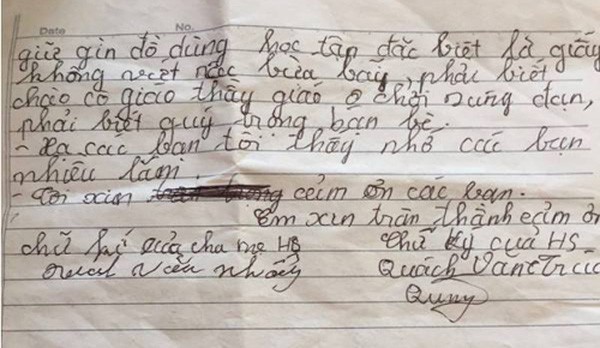 Date No.
giữ gìn đồ dùng học tập đăc biêt là giấy
không viết bừa bãy, phải biết
chào cô giáo thầy giáo chơi xúng đạn,
phải biết quý trọng bạn bè.
- xa các bạn tôi thấy nhớ các bạn
nhiêu lắm.
- Tôi xin cảm ơn các bạn.
Em xin trân thành cảm ơ
chữ kí của cha mẹ HS Chữ Ký của HS
Quách Văn